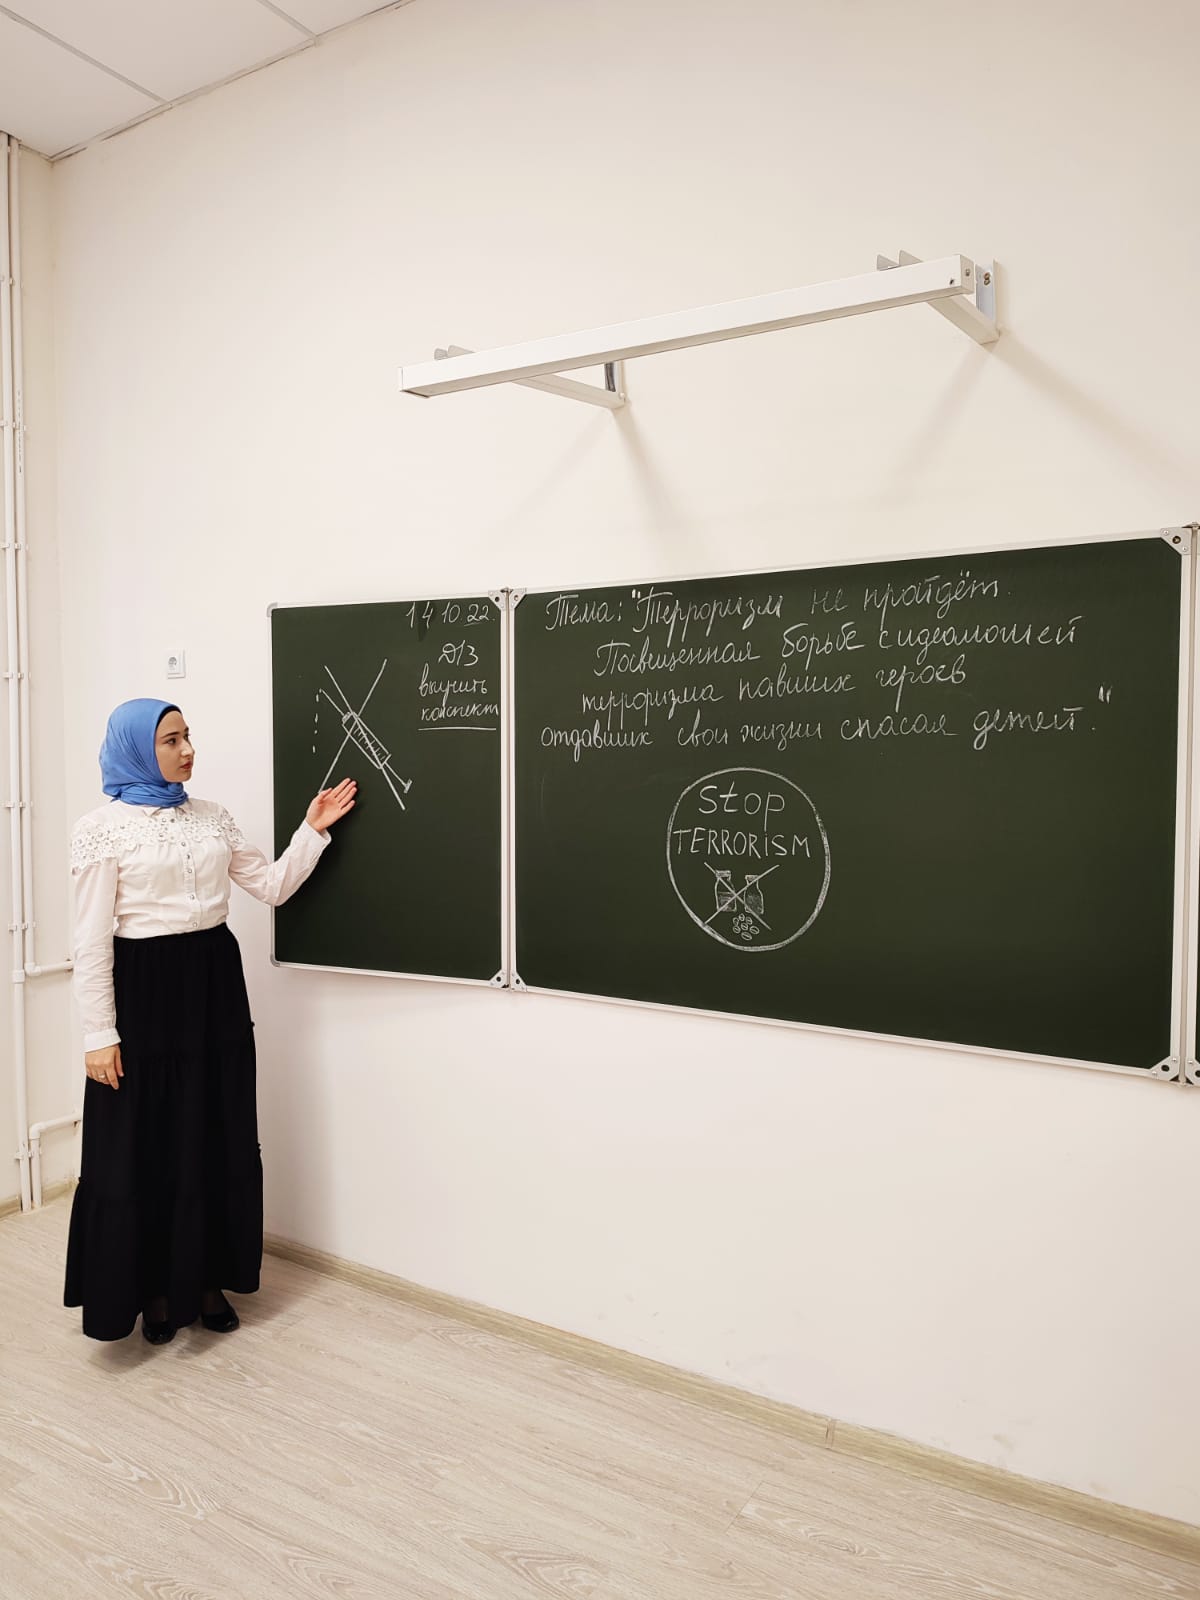 14.10.22.
Д/З
выучить
конспект
Тема: "Терроризм не пройдёт.
Посвещенная борьбе с идеологией
терроризма павших героев
отдавших свои жизни спасая детей."
Stop
TERRORiSM